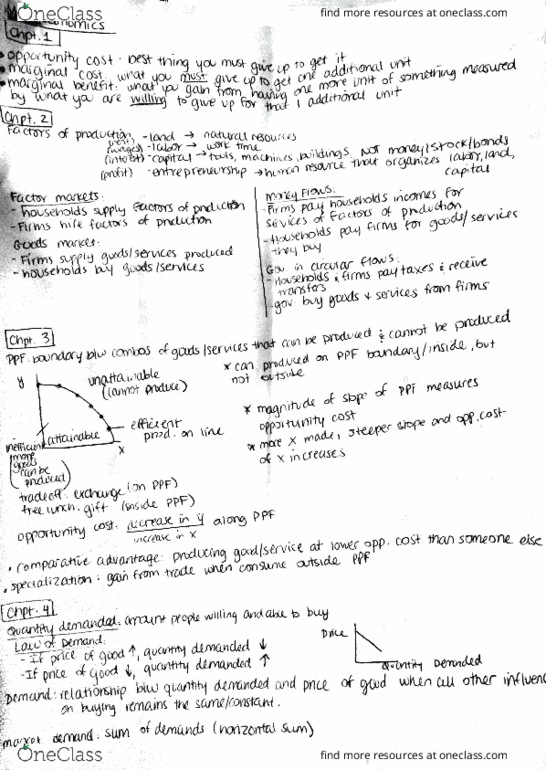 OneClass
find more resources at oneclass.com
Chpt. 1
• opportunity cost - best thing you must give up to get it
• marginal cost: what you must give up to get one additional unit
• marginal benefit: what you gain from having one more unit of something measured
by what you are willing to give up for that 1 additional unit
Chpt. 2
Factors of production - land → natural resources
(wages) - labor → work time
(interest) - capital → tools, machines, buildings, NOT money/stock/bonds
(profit) - entrepreneurship → human resource that organizes labor, land,
capital
Factor markets:
- households supply factors of production
- Firms hire factors of production
Goods market:
- Firms supply goods/services produced
- households buy goods/services
Money Flows:
- Firms pay households incomes for
services of factors of production
- Households pay firms for goods/services
they buy
Gov in circular flows:
- Households & firms pay taxes & receive
transfers
- gov. buy goods & services from firms
Chpt. 3
PPF: boundary b/w combos of goods/services that can be produced & cannot be produced
* can produced on PPF boundary/inside, but
not outside
y
unattainable
(cannot produce)
attainable
efficient
prod. on line
x
inefficient
(more
goods
can be
produced)
* magnitude of slope of PPF measures
opportunity cost
* more x made, steeper slope and opp. cost
of x increases
tradeoff: exchange (on PPF)
free lunch: gift (inside PPF)
opportunity cost: decrease in y along PPF
increase in x
• comparative advantage: producing good/service at lower opp. cost than someone else
• specialization: gain from trade when consume outside PPF
Chpt. 4
Quantity demanded: amount people willing and able to buy
Law of Demand:
- If price of good ↑, quantity demanded ↓
- If price of good ↓, quantity demanded ↑
Price
Quantity Demanded
Demand: relationship b/w quantity demanded and price of good when all other influen
on buying remains the same/constant.
market demand: sum of demands (horizontal sum)
OneClass
find more resources at oneclass.com